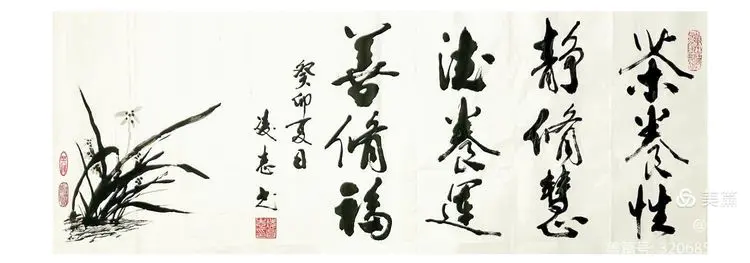 茶養性
静脩慧
德養運
善脩福
癸卯夏日
凌志
美篇
美篇号: 320685